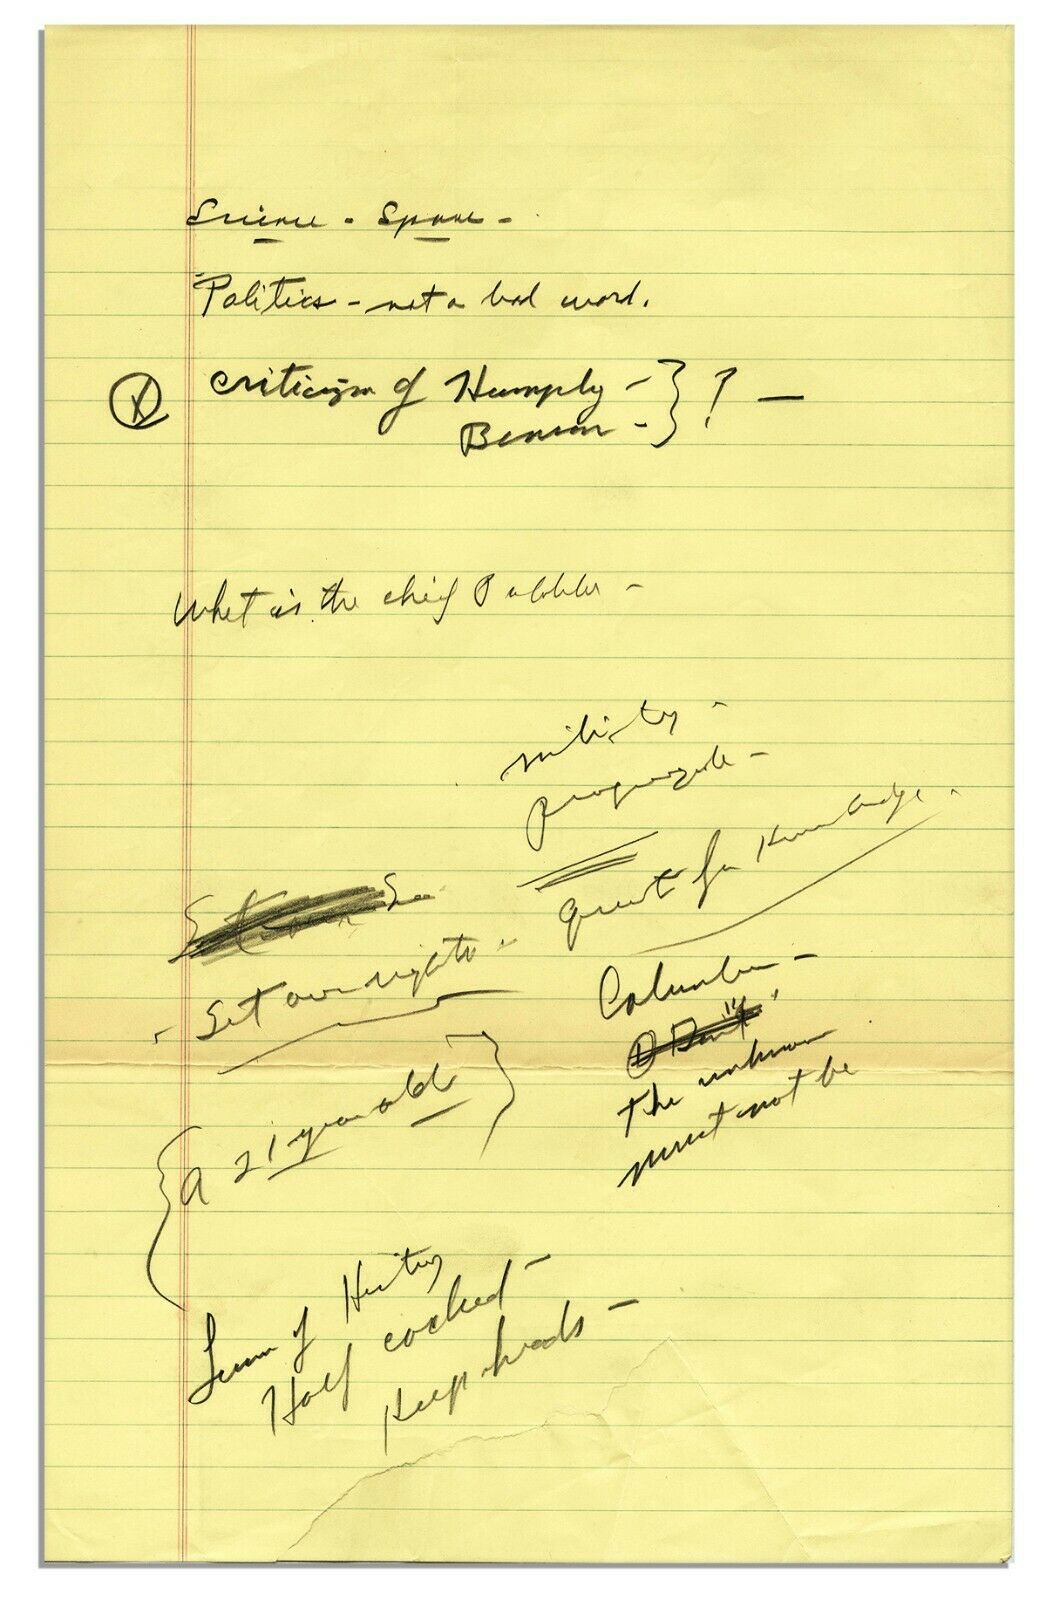 Science - Space -
Politics - not a bad word.
X criticism of Humphy - } ? -
Benson -
What is the chief Problem -
military -
propaganda -
quest for Knowledge -
Set our rights -
Columbus -
The unknown
must not be
{ a 21 year old }
of History
Half cocked -
Keep heads -